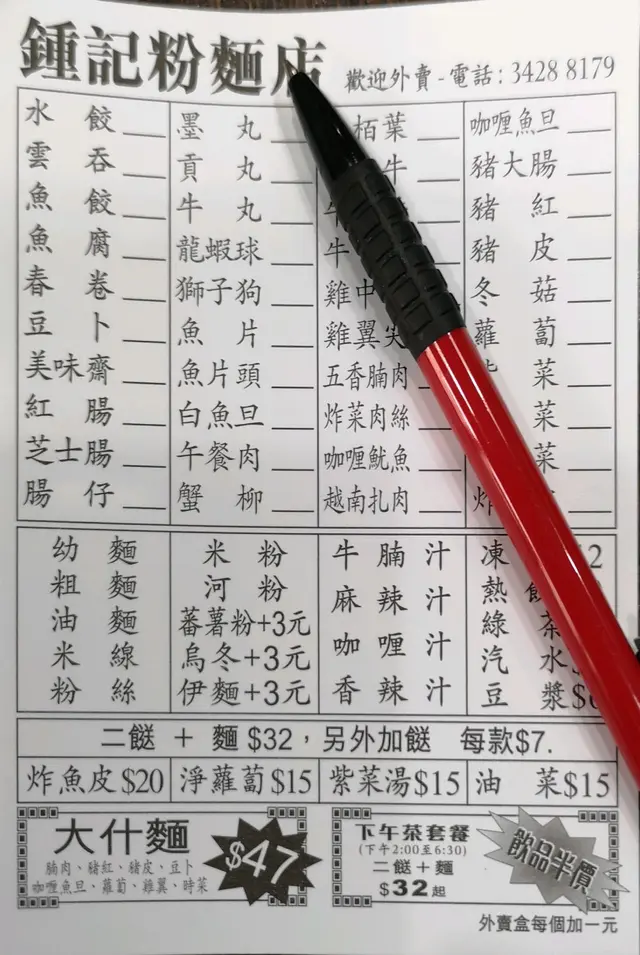 鍾記粉麵店
歡迎外賣 - 電話 : 3428 8179
水餃
雲吞
魚餃
魚腐
春卷
豆卜
美味齋
紅腸
芝士腸
腸仔
墨丸
貢丸
牛丸
龍蝦球
獅子狗
魚片
魚片頭
白魚旦
午餐肉
蟹柳
栢葉
牛
牛
雞中
雞翼尖
五香腩肉
炸菜肉絲
咖喱魷魚
越南扎肉
咖喱魚旦
豬大腸
豬紅
豬皮
冬菇
蘿蔔
菜
菜
菜
炸
幼麵
粗麵
油麵
米線
粉絲
米粉
河粉
蕃薯粉+3元
烏冬+3元
伊麵+3元
牛腩汁
麻辣汁
咖喱汁
香辣汁
凍
熱
綠茶
汽水
豆漿
二餸 + 麵 $32，另外加餸 每款$7.
炸魚皮$20
淨蘿蔔$15
紫菜湯$15
油菜$15
大什麵
腩肉、豬紅、豬皮、豆卜
咖喱魚旦、蘿蔔、雞翼、時菜
$47
下午茶套餐
(下午2:00至6:30)
二餸 + 麵
$32起
飲品半價
外賣盒每個加一元